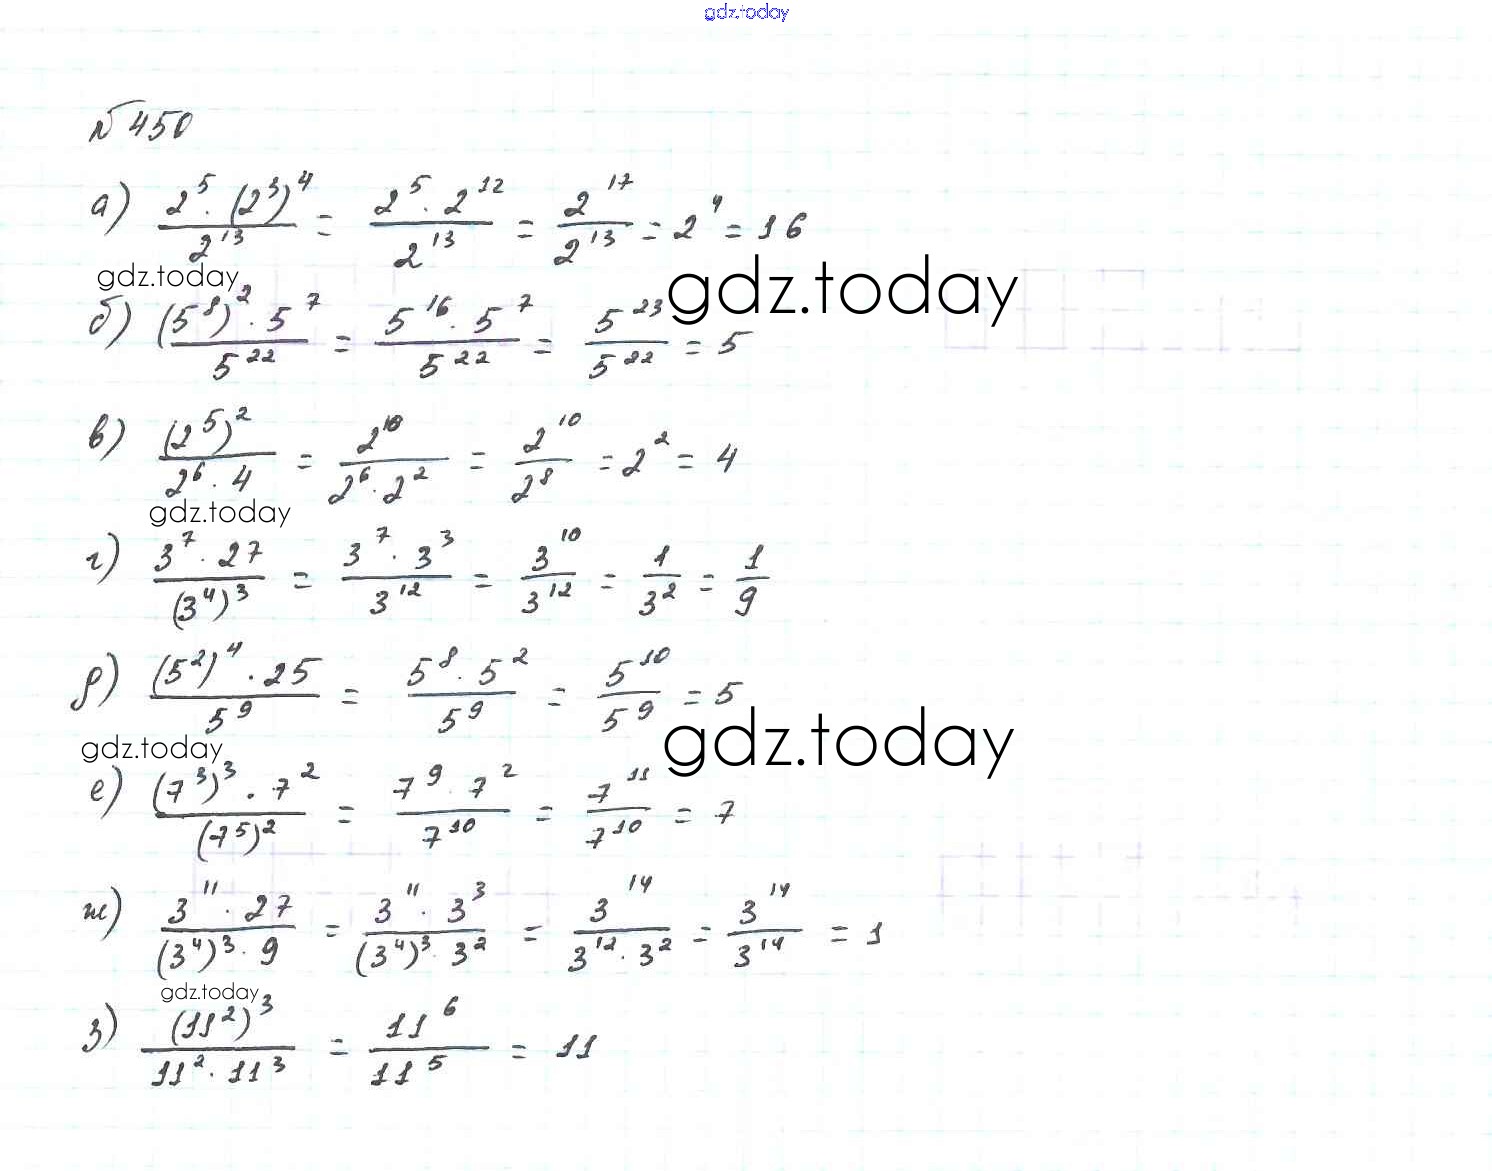 gdz.today
№450
а) (2^5 · (2^3)^4)/(2^13) = (2^5 · 2^12)/(2^13) = (2^17)/(2^13) = 2^4 = 16
gdz.today
gdz.today
б) ((5^8)^2 · 5^7)/(5^22) = (5^16 · 5^7)/(5^22) = (5^23)/(5^22) = 5
в) ((2^5)^2)/(2^6 · 4) = (2^10)/(2^6 · 2^2) = (2^10)/(2^8) = 2^2 = 4
gdz.today
г) (3^7 · 27)/((3^4)^3) = (3^7 · 3^3)/(3^12) = (3^10)/(3^12) = 1/(3^2) = 1/9
д) ((5^2)^4 · 25)/(5^9) = (5^8 · 5^2)/(5^9) = (5^10)/(5^9) = 5
gdz.today
gdz.today
е) ((7^3)^3 · 7^2)/((7^5)^2) = (7^9 · 7^2)/(7^10) = (7^11)/(7^10) = 7
ж) (3^11 · 27)/((3^4)^3 · 9) = (3^11 · 3^3)/((3^4)^3 · 3^2) = (3^14)/(3^12 · 3^2) = (3^14)/(3^14) = 1
gdz.today
з) ((11^2)^3)/(11^2 · 11^3) = (11^6)/(11^5) = 11